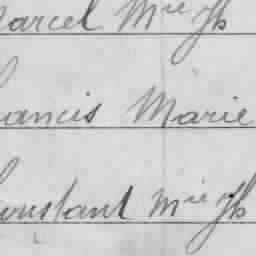 Marcel Mie Jh
Francis Marie
Constant Mie Jh